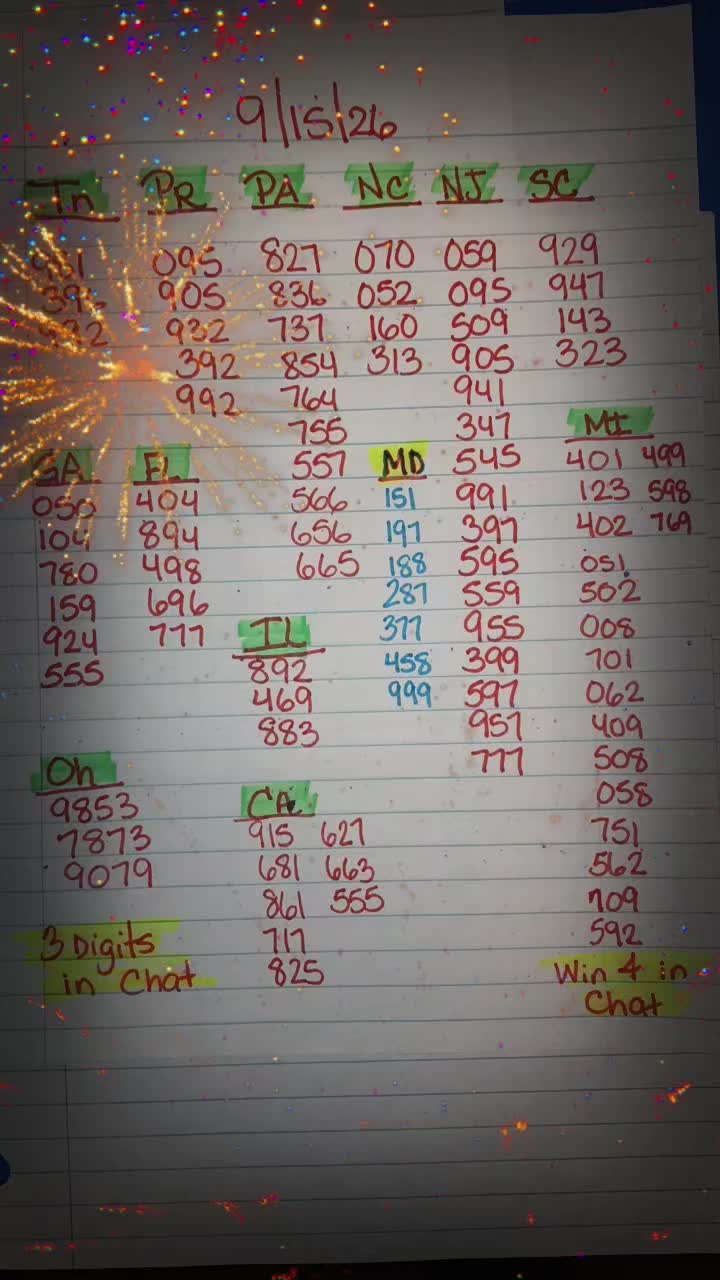 9/15/26
Tn PR PA NC NJ SC
931 095 827 070 059 929
396 905 836 052 095 947
932 932 737 160 509 143
392 854 313 905 323
992 764 941
755 347 MI
GA FL 557 MD 545 401 499
050 404 566 151 991 123 598
104 894 656 197 397 402 769
780 498 665 188 595 051
159 696 287 559 502
924 777 IL 377 955 008
555 892 458 399 701
469 999 597 062
883 957 409
Oh 777 508
9853 CA 058
7873 915 627 751
9079 681 663 562
861 555 709
3 Digits 717 592
in Chat 825 Win 4 in
Chat